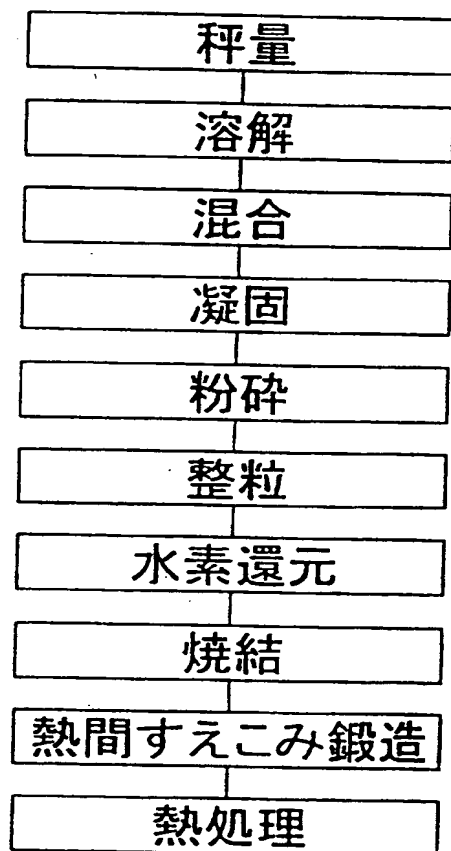 秤量
溶解
混合
凝固
粉砕
整粒
水素還元
焼結
熱間すえこみ鍛造
熱処理